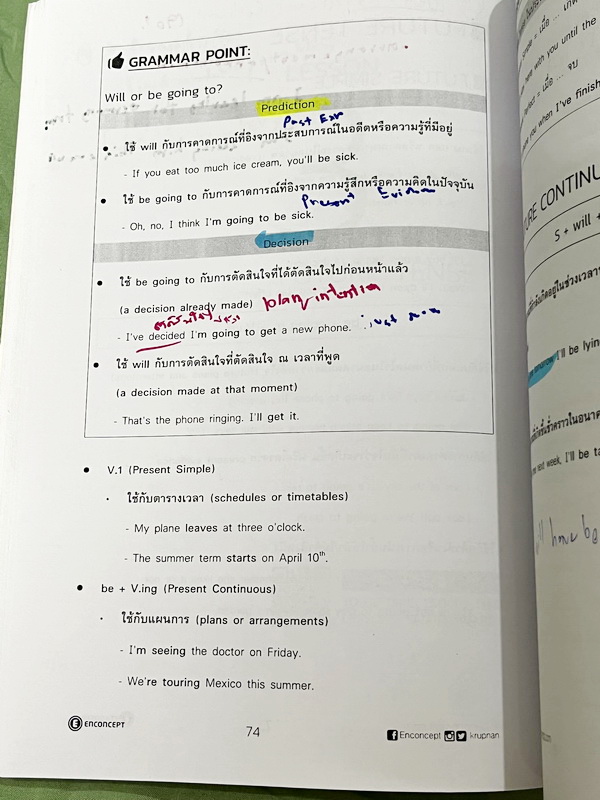 GRAMMAR POINT:
Will or be going to?
Prediction
Past Exp
• ใช้ will กับการคาดการณ์ที่อิงจากประสบการณ์ในอดีตหรือความรู้ที่มีอยู่
- If you eat too much ice cream, you'll be sick.
• ใช้ be going to กับการคาดการณ์ที่อิงจากความรู้สึกหรือความคิดในปัจจุบัน
Present
- Oh, no, I think I'm going to be sick.
Decision
• ใช้ be going to กับการตัดสินใจที่ได้ตัดสินใจไปก่อนหน้าแล้ว
(a decision already made) plan/intention
- I've decided I'm going to get a new phone. just now
• ใช้ will กับการตัดสินใจที่ตัดสินใจ ณ เวลาที่พูด
(a decision made at that moment)
- That's the phone ringing. I'll get it.
• V.1 (Present Simple)
· ใช้กับตารางเวลา (schedules or timetables)
- My plane leaves at three o'clock.
- The summer term starts on April 10th.
• be + V.ing (Present Continuous)
· ใช้กับแผนการ (plans or arrangements)
- I'm seeing the doctor on Friday.
- We're touring Mexico this summer.
ENCONCEPT
74
Enconcept krupnan
with you until the
you when I've finish
URE CONTINU
S + will +
tomorrow I'll be lying
next week, I'll be ta